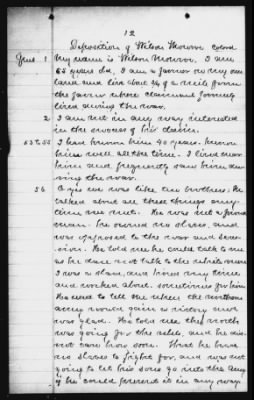 12
Deposition of Wilson Colored
Ques. 1 My name is Wilson I am
65 years old, I am a farmer on my own
land and live about 3/4 of a mile from
the farm where claimant formerly
lived during the war.
2 I am not in any way interested
in the success of his claim.
53 to 55 I have known him 40 years. Know
him well all the time. I lived near
him and frequently saw him du-
ring the war.
56 O yes we was like two brothers; he
talked about all these things any
time we met. He was not a
man. he owned no slaves, and
was opposed to the war and seces-
sion. He told me he could talk to me
as he dare not talk to the rebels men
I was a slave, and hired my time
and worked about. sometimes for him
He used to tell me when the northern
army would gain a victory and
was glad. He told me the north
was going for the rebels, and he did
not care how soon. That he had
no slaves to fight for, and was not
going to let his sons go into the army
if he could prevent it in any way